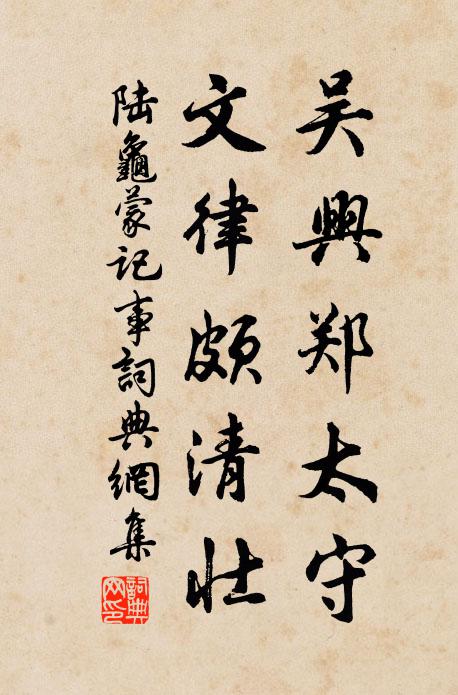 吴興郑太守
文律頗清壮
陆龜蒙记事詞典網集
詞典网印